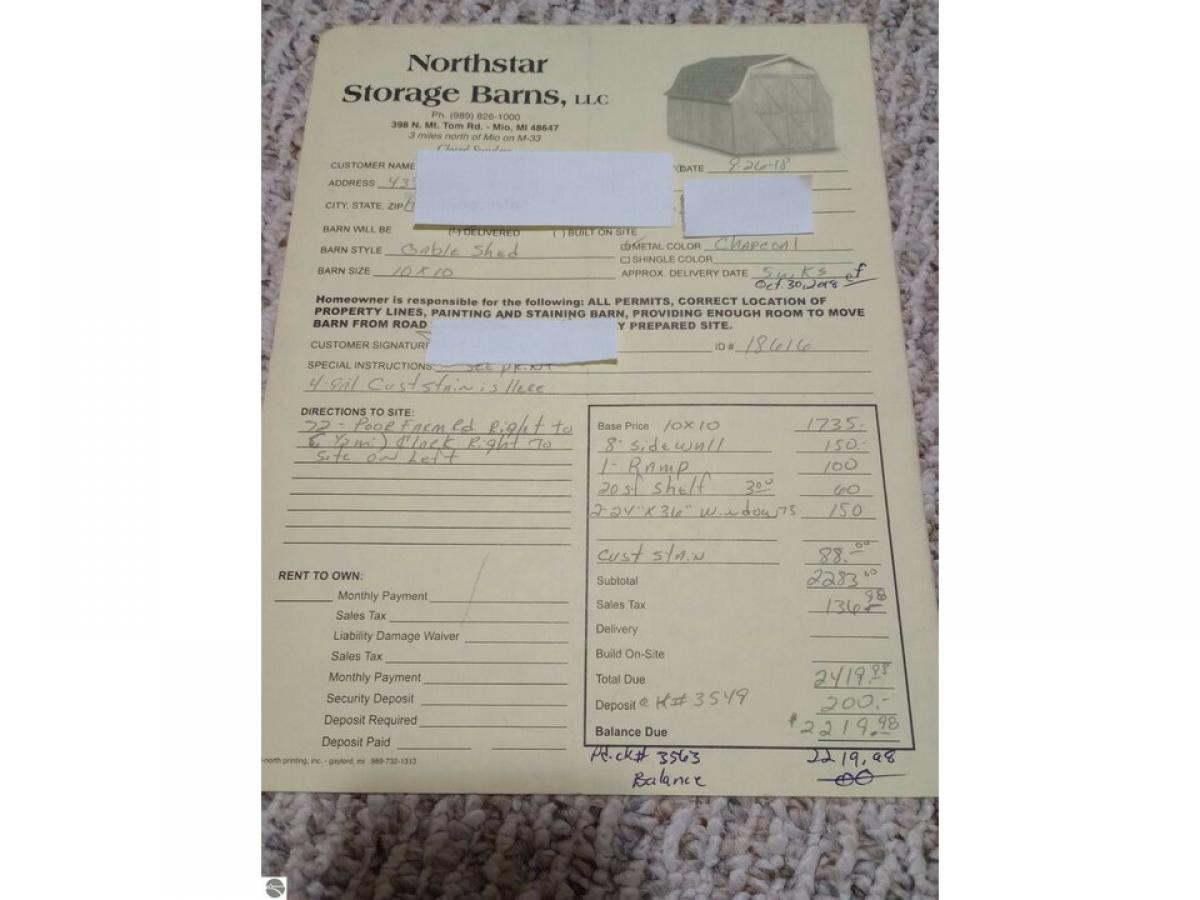 Northstar
Storage Barns, LLC
Ph. (989) 826-1000
398 N. Mt. Tom Rd. - Mio, MI 48647
3 miles north of Mio on M-33
CUSTOMER NAME DATE 9-26-18
ADDRESS 43
CITY, STATE, ZIP
BARN WILL BE (✓) DELIVERED ( ) BUILT ON SITE
BARN STYLE Gable Shed ☑ METAL COLOR Charcoal
☐ SHINGLE COLOR
BARN SIZE 10x10 APPROX. DELIVERY DATE 5wks
Oct. 30, 2018
Homeowner is responsible for the following: ALL PERMITS, CORRECT LOCATION OF
PROPERTY LINES, PAINTING AND STAINING BARN, PROVIDING ENOUGH ROOM TO MOVE
BARN FROM ROAD Y PREPARED SITE.
CUSTOMER SIGNATURE ID # 18616
SPECIAL INSTRUCTIONS: SEE PRINT
4-gal Cust stain is Here
DIRECTIONS TO SITE:
72 - Poor Farm Rd Right to
Right To
Site on Left
Base Price 10x10 1735.-
8' sidewall 150.-
1- Ramp 100
20 sf Shelf 3.00 60
2-24"x36" windows 75 150
Cust stain 88.00
Subtotal 2283.00
Sales Tax 136.98
Delivery
Build On-Site
Total Due 2419.98
Deposit CK# 3549 200.-
Balance Due $2219.98
Pd. ck# 3563 2219.98
Balance 00
RENT TO OWN:
Monthly Payment
Sales Tax
Liability Damage Waiver
Sales Tax
Monthly Payment
Security Deposit
Deposit Required
Deposit Paid
-north printing, inc. - gaylord, mi 989-732-1313